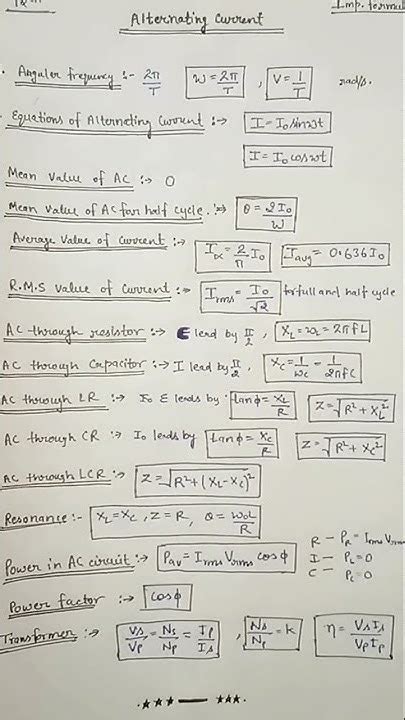 Imp. formul
Alternating Current
Angular frequency :- 2π/T  W = 2π/T , V = 1/T  rad/s.
Equations of Alternating Current :→ I = I₀ sin wt
I = I₀ cos wt
Mean value of AC :→ 0
Mean value of AC for half cycle :→ θ = 2I₀/W
Average value of current :→ I = 2/π I₀  Iavg = 0.636 I₀
R.M.S value of current :→ Irms = I₀/√2 for full and half cycle
AC through resistor :→ E lead by π/2 , XL = wL = 2πfL
AC through Capacitor :→ I lead by π/2 , XC = 1/wC = 1/2πfC
AC through LR :→ I₀ E leads by :→ tanϕ = XL/R  Z = √R² + XL²
AC through CR :→ I₀ leads by tanϕ = XC/R  Z = √R² + XC²
AC through LCR :→ Z = √R² + (XL - XC)²
Resonance :- XL = XC , Z = R, θ = w₀L/R
Power in AC circuit :→ Pav = Irms Vrms cos ϕ
R – PR = Irms Vrms
I – PL = 0
C – PC = 0
Power factor :→ cos ϕ
Transformer :→ VS/VP = NS/NP = IP/IS , NS/NP = k  η = VS IS/VP IP